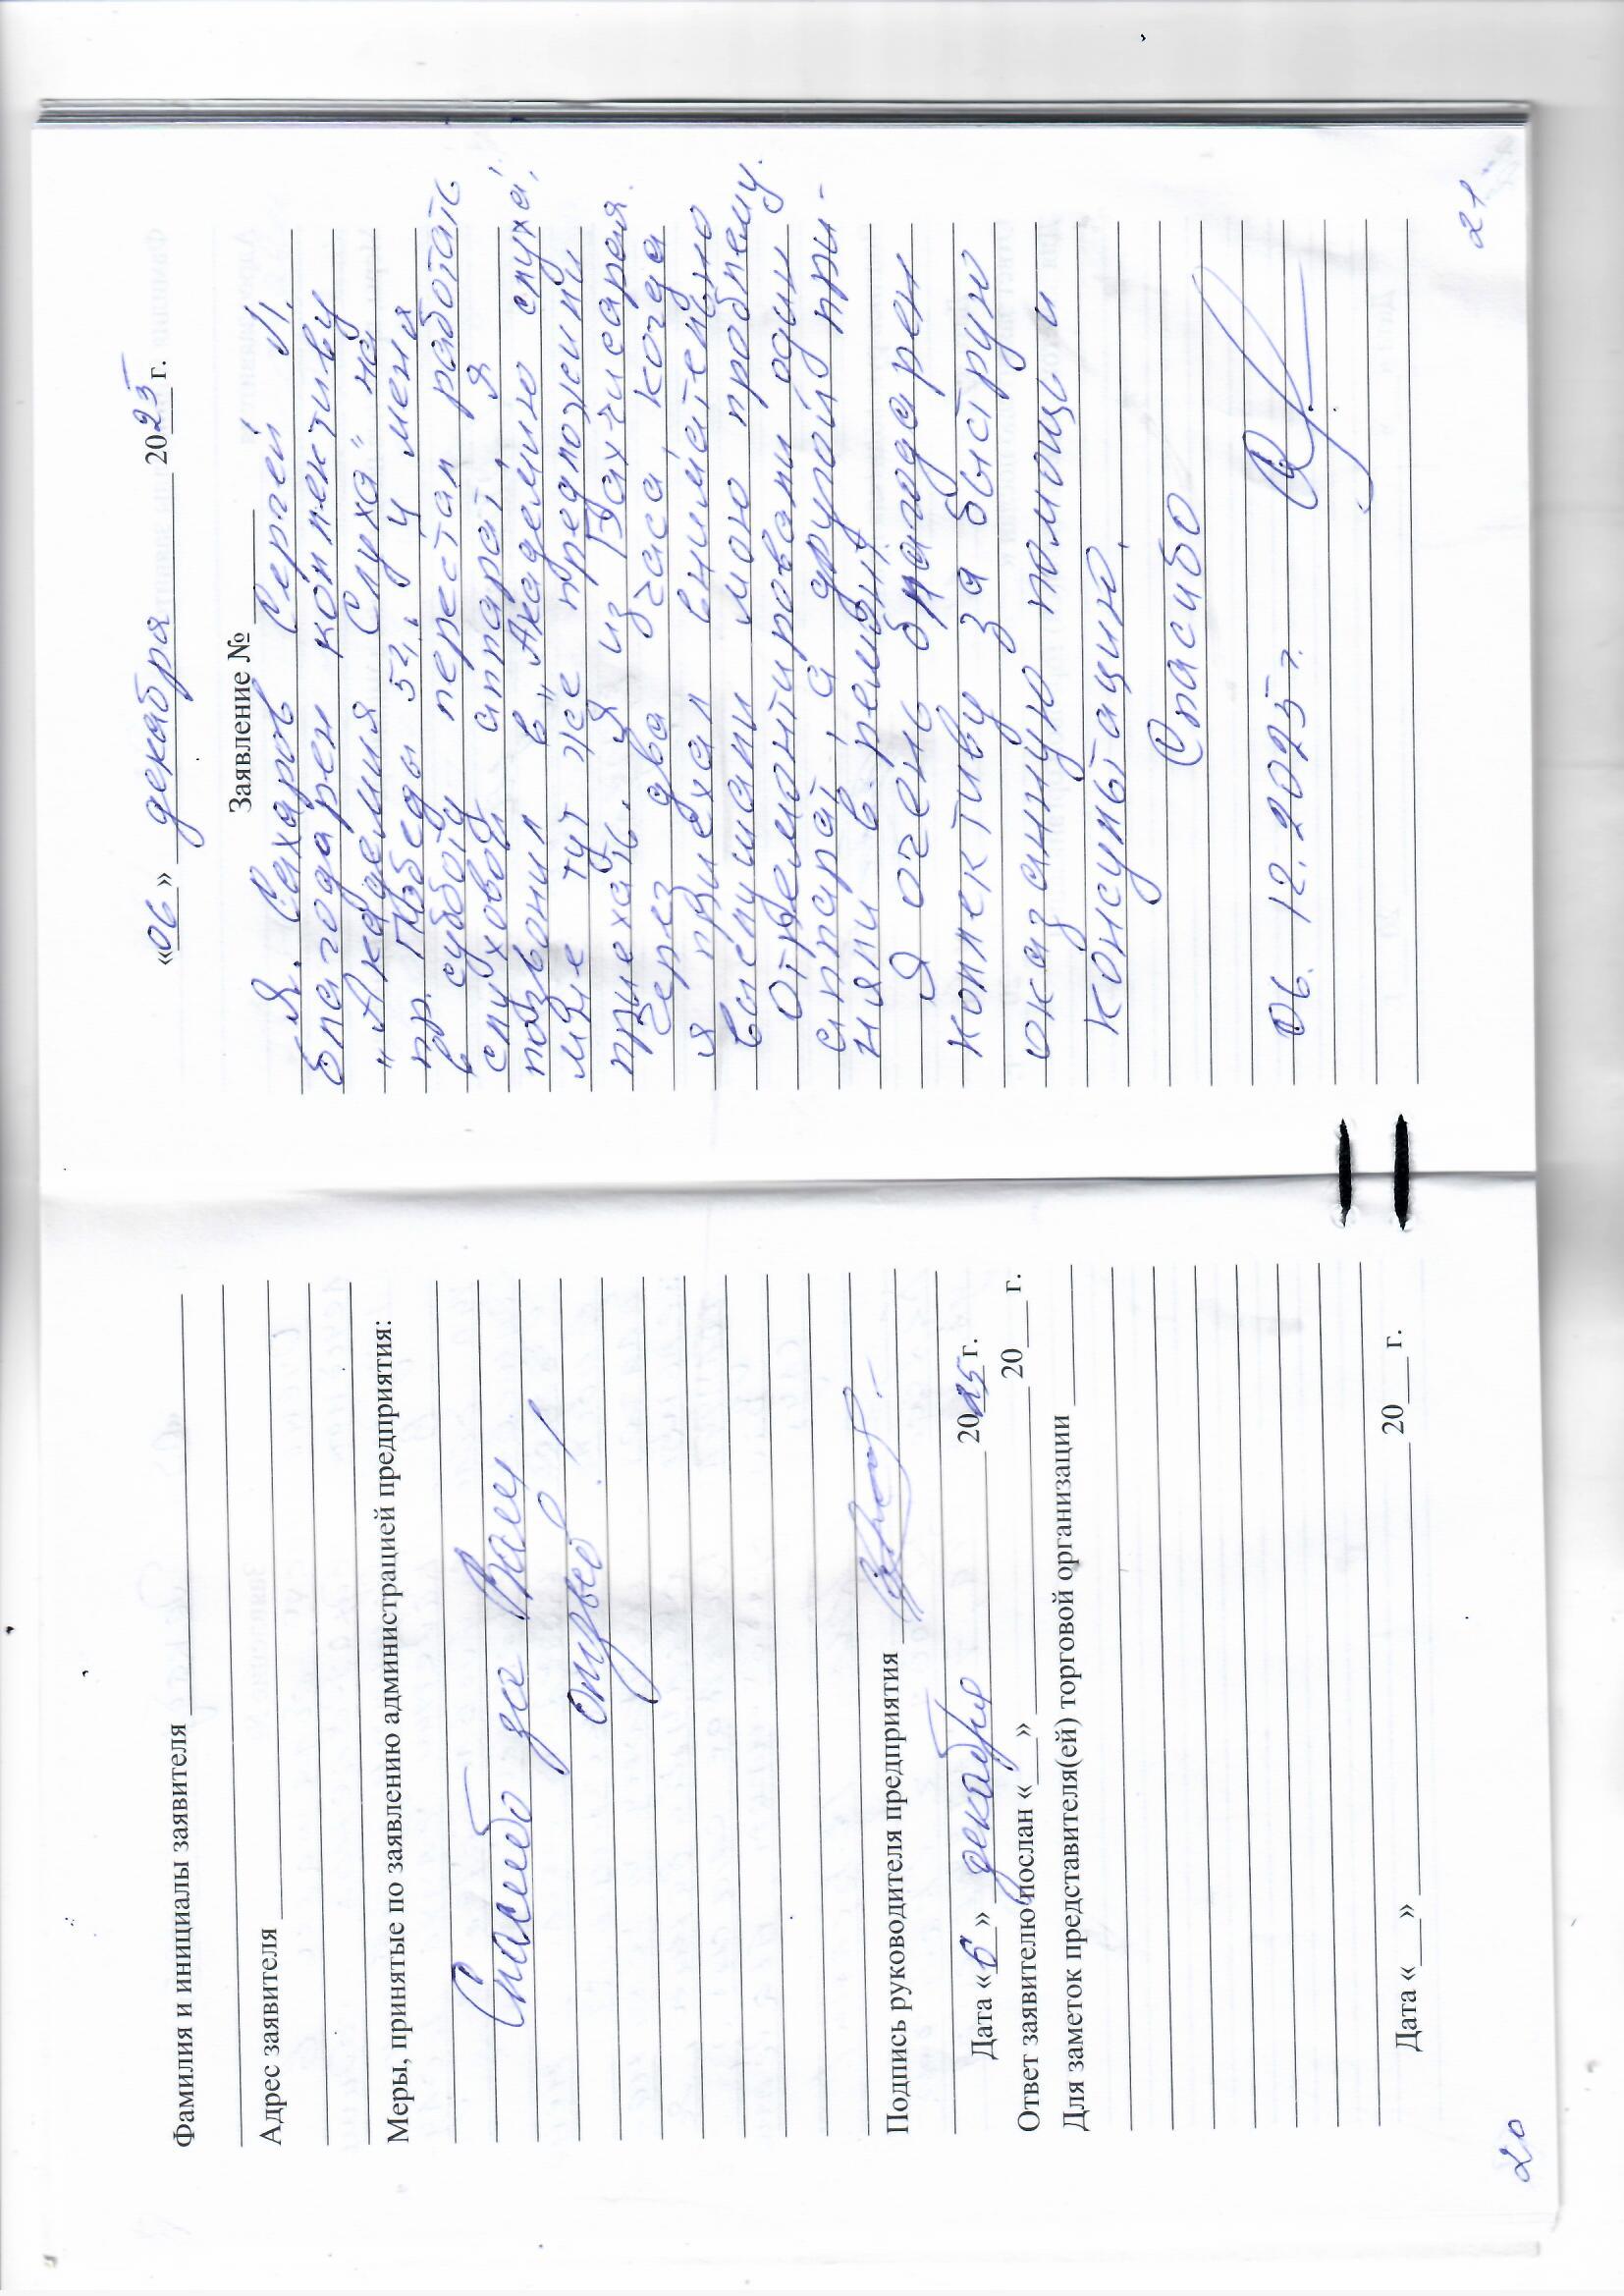 Фамилия и инициалы заявителя
Адрес заявителя
Меры, принятые по заявлению администрацией предприятия:
Спасибо за Ваш
отзыв!
Подпись руководителя предприятия
Дата «6» декабря 2025 г.
Ответ заявителю послан «___» 20___г.
Для заметок представителя(ей) торговой организации
Дата «___» 20___ г.
20
«06» декабря 2025 г.
Заявление №
Я. Сахаров Сергей И.
благодарен коллективу
"Академия Слуха" на
пр. Победы 52, у меня
в субботу перестал работать
слуховой аппарат, я
позвонил в "Академию слуха",
мне тут же предложили
приехать. Я из Бахчисарая.
Через два часа, когда
я приехал внимательно
выслушали мою проблему.
Отремонтировали один
аппарат, а другой при-
няли в ремонт.
Я очень благодарен
коллективу за быструю
оказанную помощь и
консультацию.
Спасибо
06.12.2025 г.
21